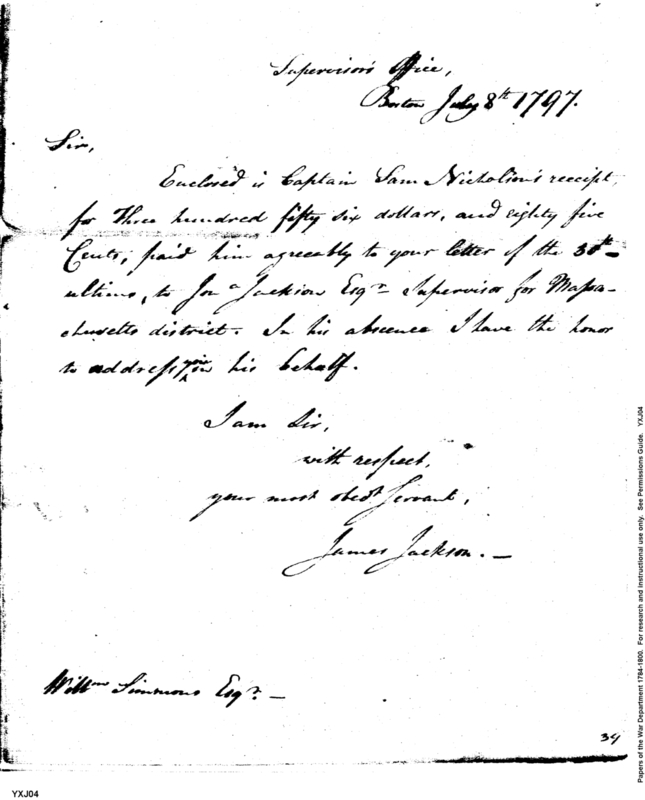 Supervisor's Office,
Boston July 8th 1797.
Sir,
Enclosed is Captain Sam Nicholson's receipt,
for Three hundred fifty six dollars, and eighty five
Cents, paid him agreeably to your letter of the 30th
ultimo, to Jona Jackson Esqr Supervisor for Massa-
chusetts district. In his absence I have the honor
to address you in his behalf.
I am Sir,
with respect,
your most obedt Servant,
James Jackson. —
Willm Simmons Esqr. —
34
YXJ04
Papers of the War Department 1784-1800. For research and instructional use only. See Permissions Guide. YXJ04